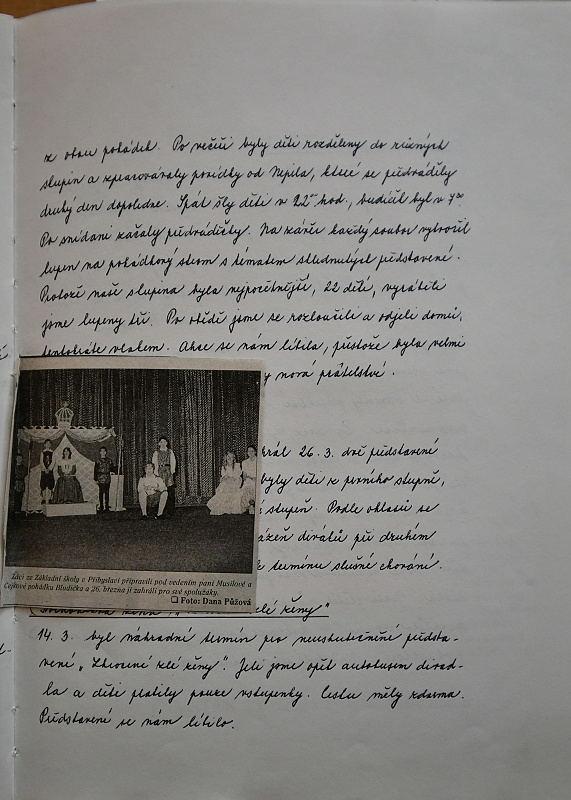 z obou pohádek. Po večeři byly děti rozděleny do různých
skupin a zpracovávaly povídky od Nepila, které se předváděly
druhý den dopoledne. Spát šly děti v 22⁰⁰ hod., budíček byl v 7⁰⁰.
Po snídani začaly předváděčky. Na závěr každý soubor vytvořil
lupen na pohádkový strom s tématem shlédnutých představení.
Protože naše skupina byla nejpočetnější, 22 dětí, vyráběli
jsme lupeny tři. Po obědě jsme se rozloučili a odjeli domů,
tentokráte vlakem. Akce se nám líbila, přestože byla velmi
y nová přátelství.
hrál 26. 3. dvě představení
byly děti z prvního stupně,
stupeň. Podle ohlasů se
ázeň diváků při druhém
k termínu slušné chování.
Žáci ze Základní školy v Přibyslavi připravili pod vedením paní Musilové a
Cejkové pohádku Bludička a 26. března ji zahráli pro své spolužáky.
❑ Foto: Dana Půžová
zlé ženy"
14. 3. byl náhradní termín pro neuskutečnění předsta-
vení „Zkrocení zlé ženy". Jeli jsme opět autobusem divad-
la a děti platily pouze vstupenky. Cestu měly zdarma.
Představení se nám líbilo.